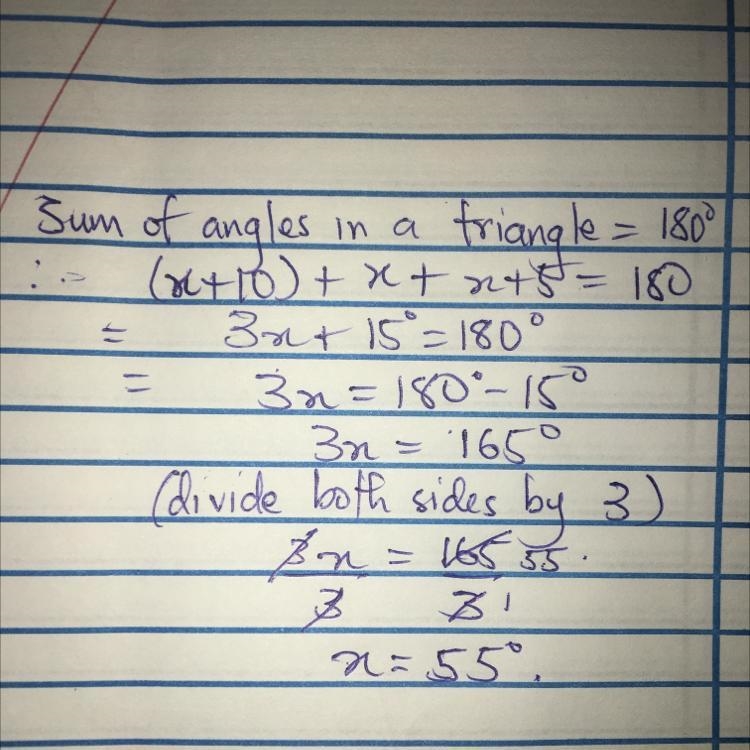 Sum of angles in a triangle = 180°
∴ = (x+10) + x + x+5 = 180
= 3x + 15° = 180°
= 3x = 180° - 15°
3x = 165°
(divide both sides by 3)
3x = 165 55.
3 3 1
x = 55°.